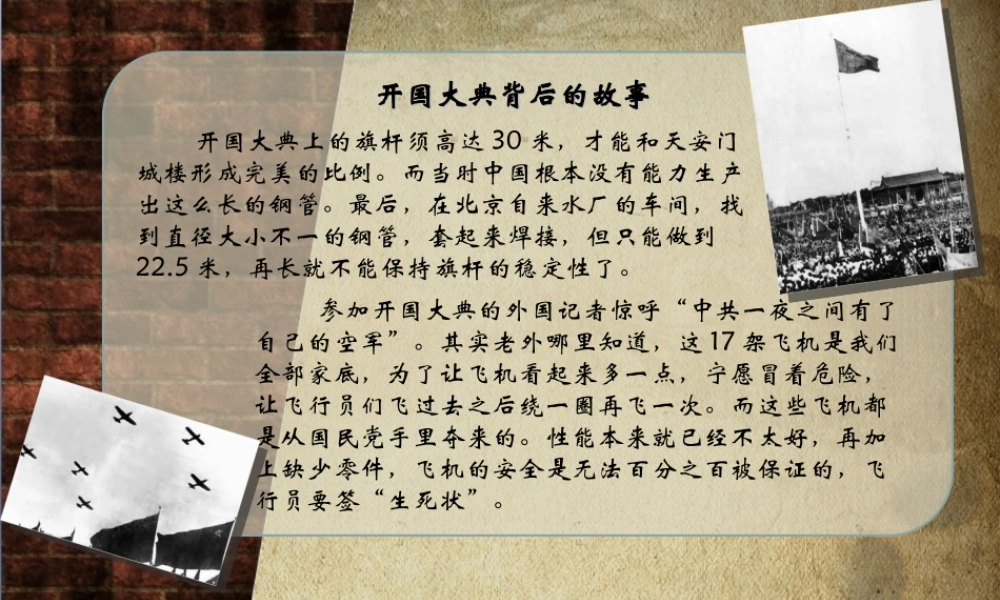 开国大典背后的故事
开国大典上的旗杆须高达 30 米，才能和天安门
城楼形成完美的比例。而当时中国根本没有能力生产
出这么长的钢管。最后，在北京自来水厂的车间，找
到直径大小不一的钢管，套起来焊接，但只能做到
22.5 米，再长就不能保持旗杆的稳定性了。
参加开国大典的外国记者惊呼“中共一夜之间有了
自己的空军”。其实老外哪里知道，这 17 架飞机是我们
全部家底，为了让飞机看起来多一点，宁愿冒着危险，
让飞行员们飞过去之后绕一圈再飞一次。而这些飞机都
是从国民党手里夺来的。性能本来就已经不太好，再加
上缺少零件，飞机的安全是无法百分之百被保证的，飞
行员要签“生死状”。